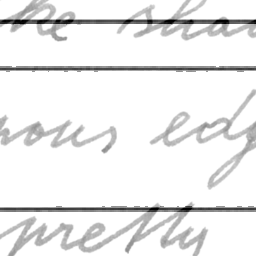 ke sha
rous edg
pretty